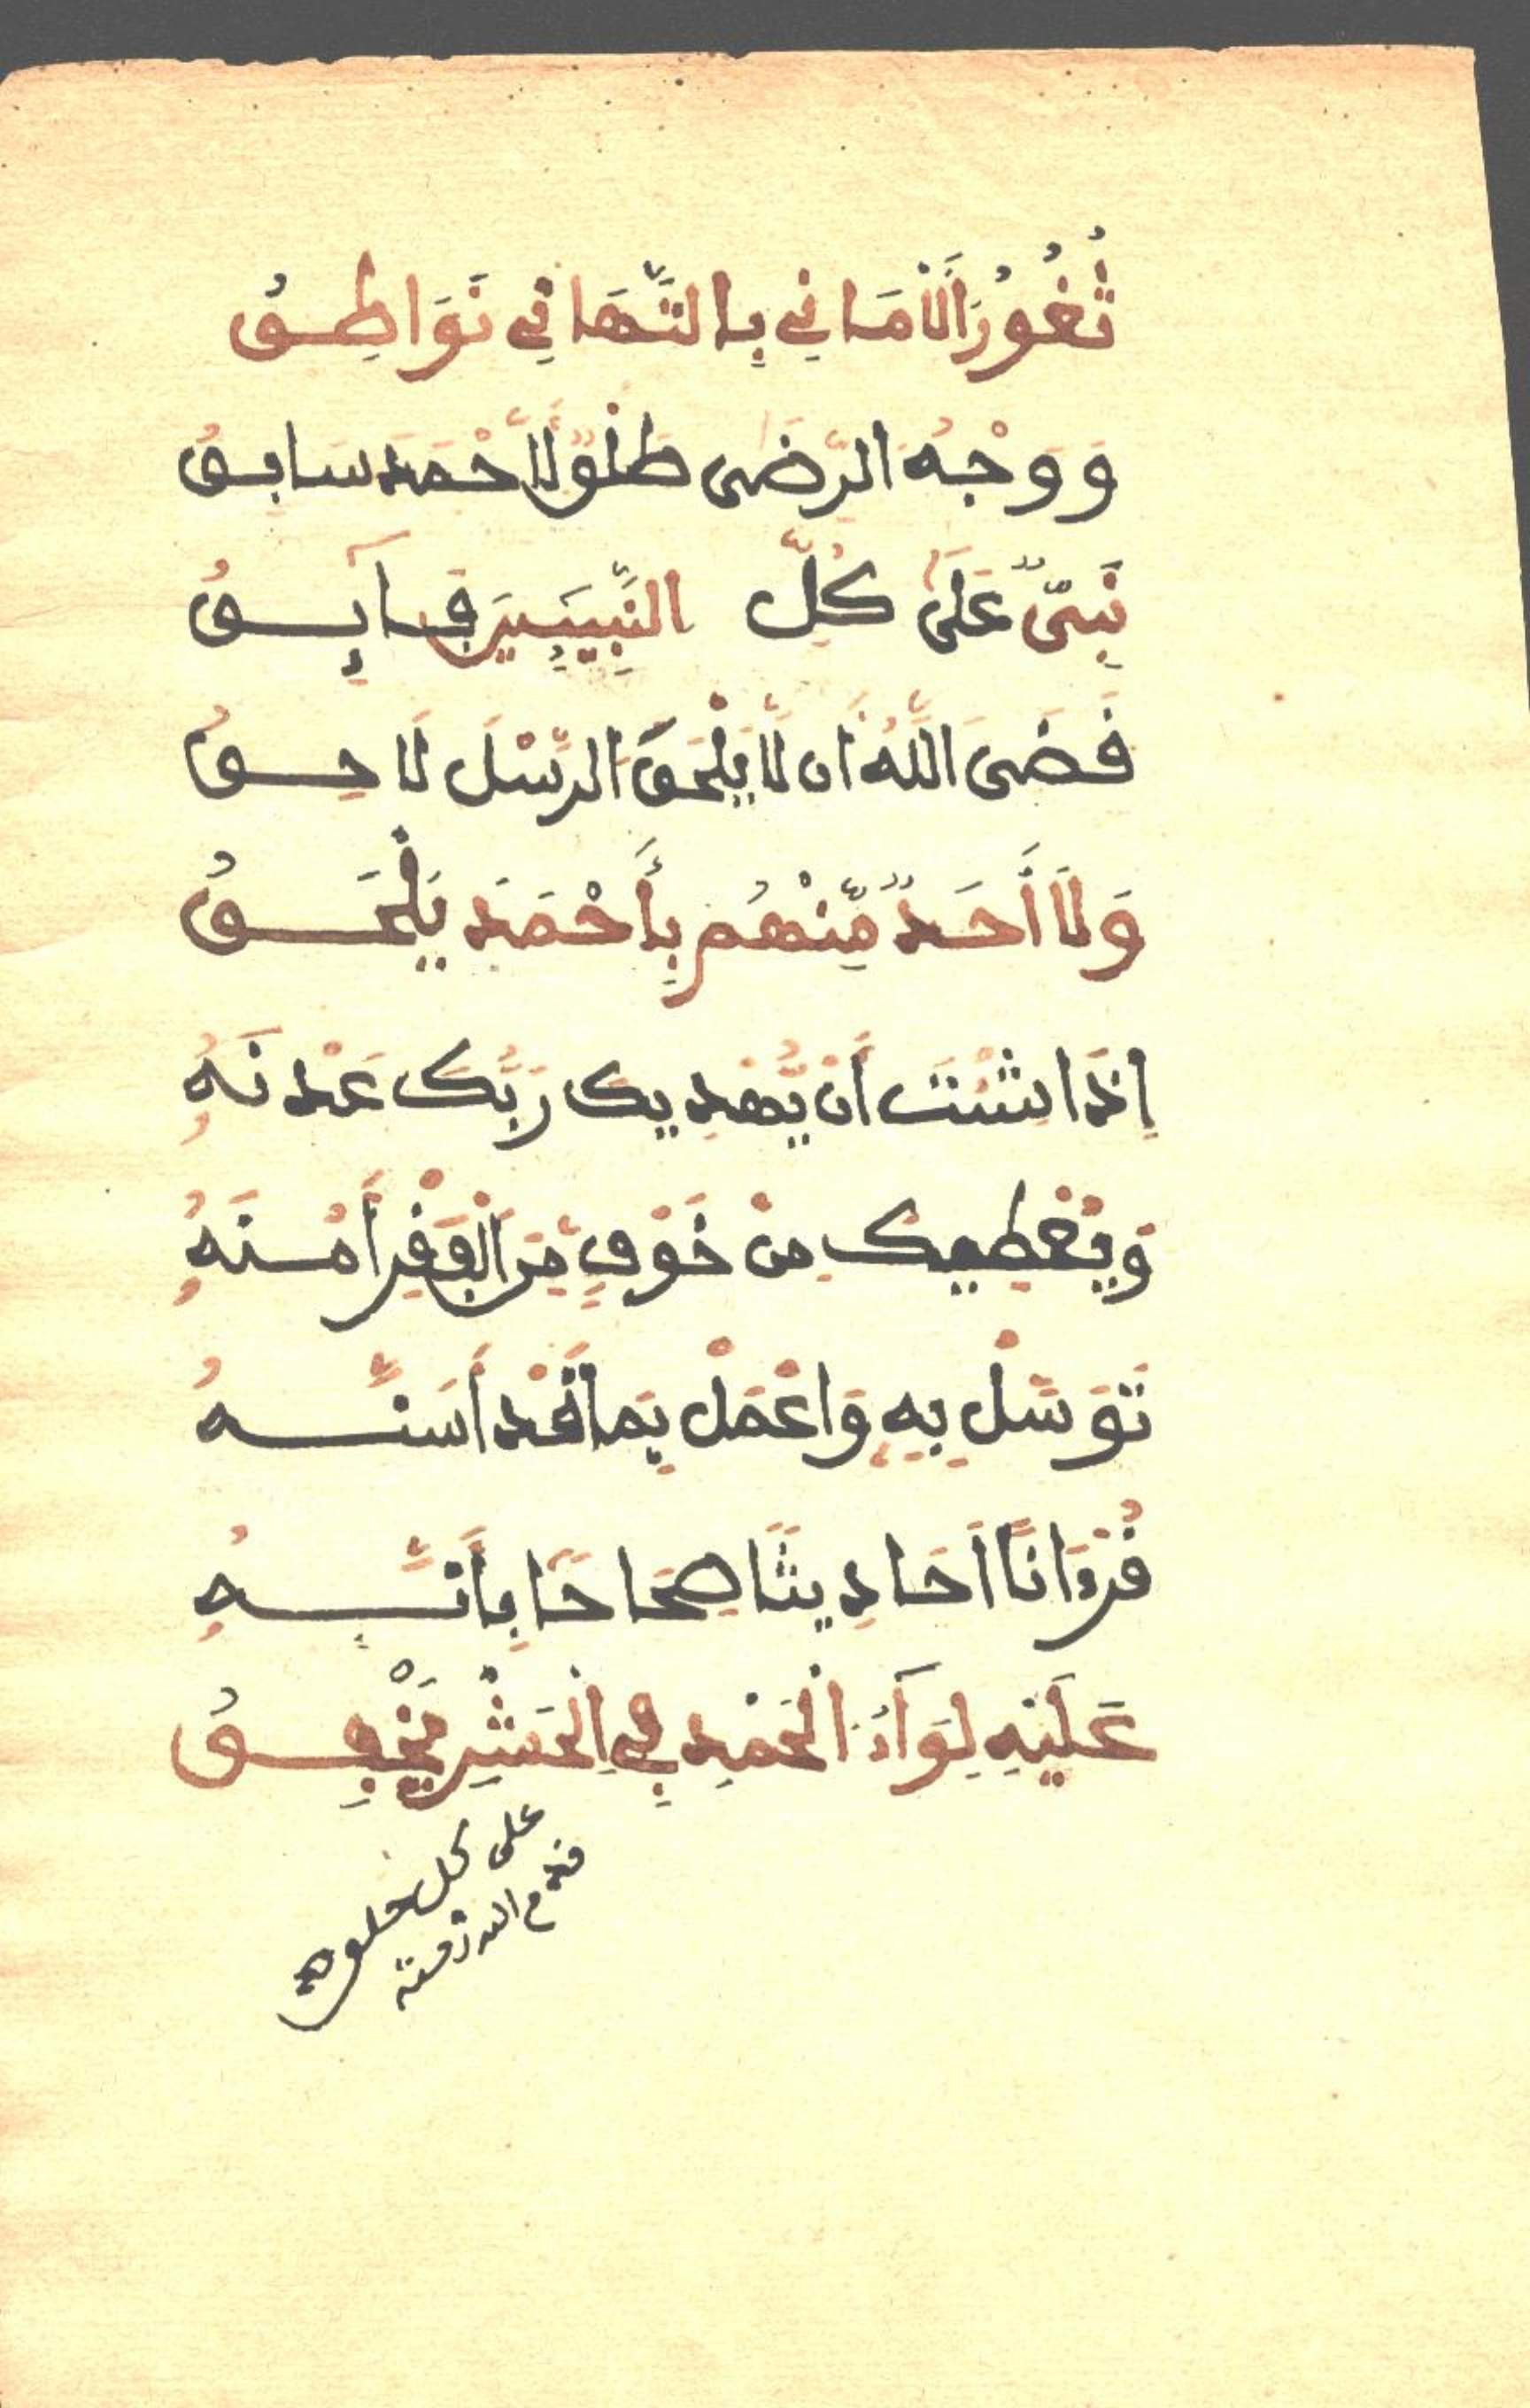 ثُغُورُ الَامَانِي بِالتَّهَانِي نَوَاطِقُ
وَوَجْهُ الرِّضَى طَلْقٌ لِّأَحْمَدَ سَابِقُ
نَبِيٌّ عَلَى كُلِّ النَّبِيِّينَ فَآيِقُ
قَضَى اللَّهُ أَن لَّا يَلْحَقَ الرُّسْلَ لَاحِقُ
وَلَا أَحَدٌ مِّنْهُم بِأَحْمَدَ يَلْحَقُ
إِذَا شِئْتَ أَنْ يُّهْدِيكَ رَبُّكَ عَدْنَهُ
وَيُعْطِيكَ مِنْ خَوْفٍ مِّنَ الْفَقْرِ أَمْنَهُ
تَوَسَّلْ بِهِ وَاعْمَلْ بِمَا قَدْ أَسَنَّهُ
قُرْءَانًا أَحَادِيثًا صِحَاحًا بِأَنَّهُ
عَلَيْهِ لِوَآءُ الْحَمْدِ فِي الْحَشْرِ يَخْفِقُ
على كل خلوه